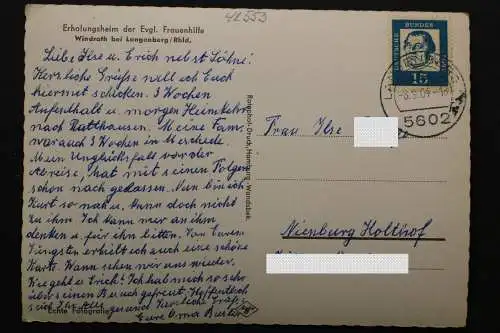 Erholungsheim der Evgl. Frauenhilfe
Windrath bei Langenberg/Rhld.
Liebe Ilse u. Erich nebst Söhne!
Herzliche Grüße will ich Euch
hiermit schicken. 3 Wochen
Aufenthalt u. morgen Heimkehr
nach Matthausen. Meine Fam.
war auch 3 Wochen in Meschede.
Mein Unglücksfall vor der
Abreise, hat mit seinen Folgen
schon nach gelassen. Nun bin ich
Kurt so nah u. kann doch nicht
zu ihm. Ich kann nur an ihm
denken u. für ihn bitten. Von Euren
Jungsten erhielt ich auch eine schöne
Karte. Wann sehen wir uns wieder.
Wie geht es Erich? Ich hab mich so sehr
über einen Besuch gefreut. Hoffentlich
Herzliche Grüße
Eure Oma
Echte Fotografie
Rotophot-Druck, Hamburg-Wandsbek
42553
DEUTSCHE BUNDES
15
5602
Frau Ilse
Nienburg Holtorf